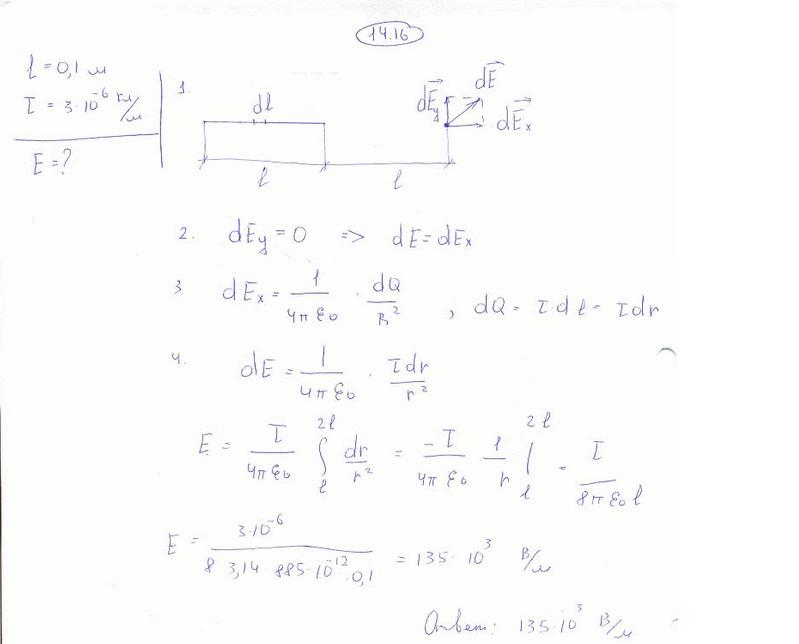 14.16
l = 0,1 м
τ = 3·10⁻⁶ Кл/м
E = ?
1.
dl
dE⃗y
dE⃗
dE⃗x
l
l
2. dEy = 0 => dE = dEx
3 dEx = 1/4πε₀ · dQ/R² , dQ = τdl = τdr
4. dE = 1/4πε₀ · τdr/r²
E = τ/4πε₀ ∫ₗ²ˡ dr/r² = -τ/4πε₀ 1/r |ₗ²ˡ = τ/8πε₀l
E = 3·10⁻⁶/8 3,14 885·10⁻¹²·0,1 = 135·10³ В/м
Ответ: 135·10³ В/м